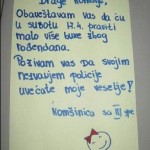 Drage komšije,
Obaveštavam vas da ću
u subotu 17.4. praviti
malo više buke zbog
rođendana.
Pozivam vas da svojim
nezvanjem policije
uvećate moje veselje!
Komšinica sa III spr